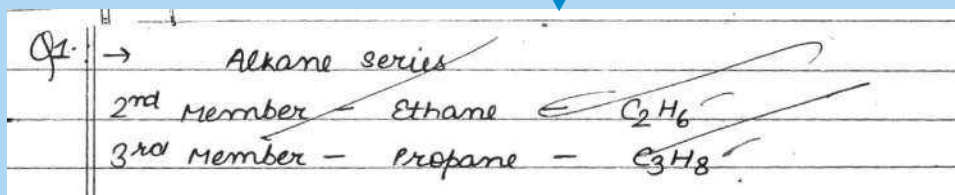 Q1. → Alkane series
2nd Member - Ethane - C2H6
3rd Member - Propane - C3H8